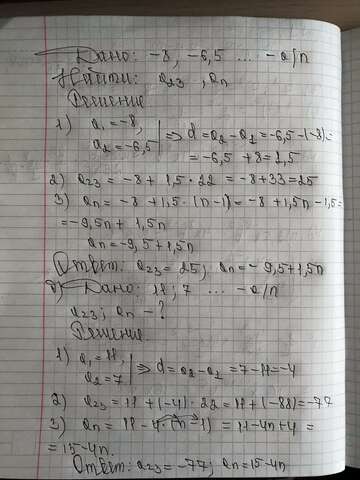 Дано: -8, -6,5 ... - а/п
Найти: a₂₃, aₙ
Решение
1) a₁ = -8, a₂ = -6,5 | ⇒ d = a₂ - a₁ = -6,5 - (-8) =
= -6,5 + 8 = 1,5
2) a₂₃ = -8 + 1,5 · 22 = -8 + 33 = 25
3) aₙ = -8 + 1,5 · (n-1) = -8 + 1,5n - 1,5 =
= -9,5n + 1,5n
aₙ = -9,5 + 1,5n
Ответ: a₂₃ = 25; aₙ = -9,5 + 1,5n
б) Дано: 11; 7 ... - а/п
a₂₃; aₙ - ?
Решение.
1) a₁ = 11, a₂ = 7 | ⇒ d = a₂ - a₁ = 7 - 11 = -4
2) a₂₃ = 11 + (-4) · 22 = 11 + (-88) = -77
3) aₙ = 11 - 4 · (n-1) = 11 - 4n + 4 =
= 15 - 4n.
Ответ: a₂₃ = -77; aₙ = 15 - 4n